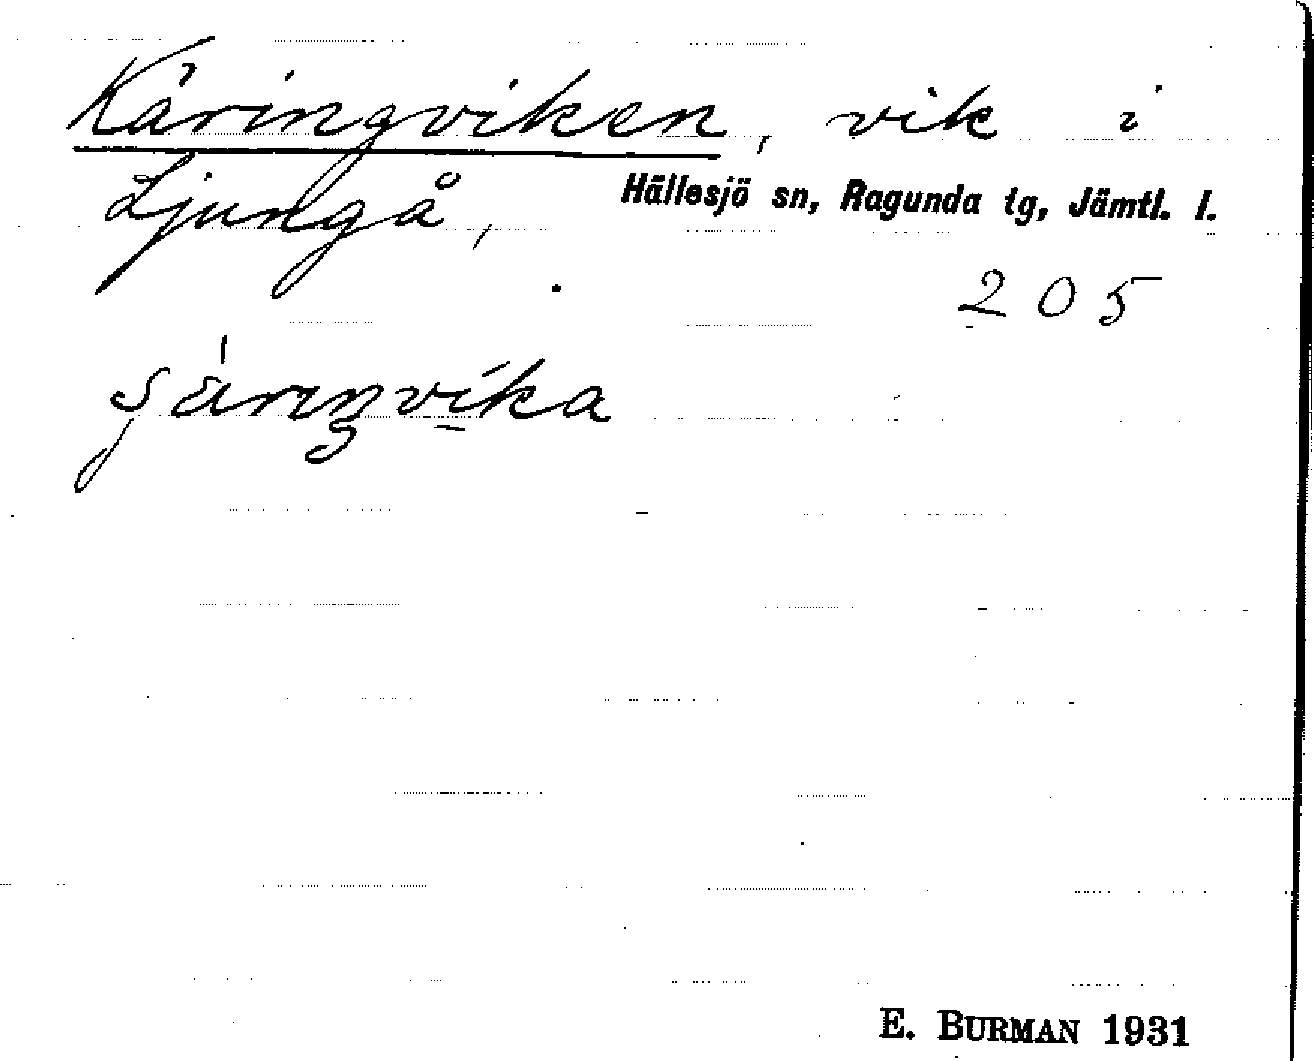 Käringviken, vik i
Ljungå, Hällesjö sn, Ragunda tg, Jämtl. l.
205
E. BURMAN 1931